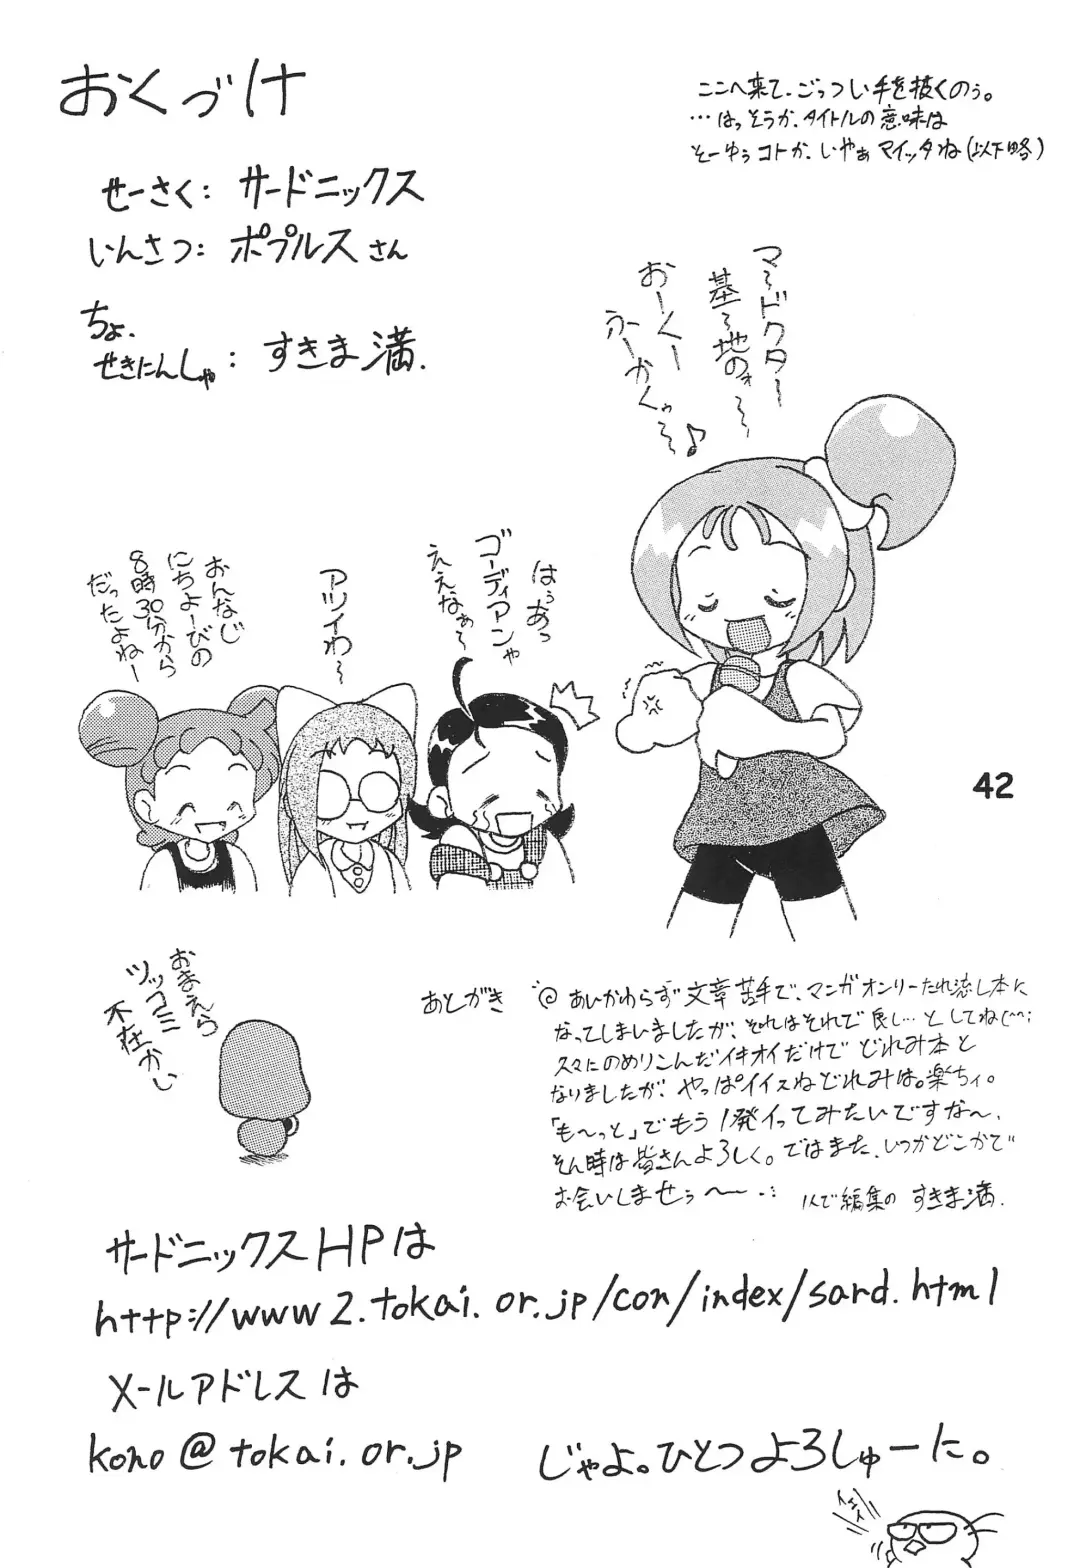 おくづけ
せーさく: サードニックス
いんさつ: ポプルスさん
ちょ.
せきにんしゃ: すきま満.
ここへ来て、ごっつい手を抜くのぅ。
…はっそうか、タイトルの意味は
そーゆぅコトか、いやぁマイッタね(以下略)
マ〜ドクター
基〜地のォ〜〜、
おーくー
ふーかくゥ〜〜♪
はぅあっ
ゴーディアンゃ
ええなぁ〜
アツイわ〜
おんなじ
にちょーびの
8時30分から
だったよねー
42
おまえら
ツッコミ
不在かい
あとがき
@ あいかわらず文章苦手で、マンガオンリーたれ流し本に
なってしまいましたが、それはそれで良し…としてね(^^;
久々にのめりこんだイキオイだけでどれみ本と
なりましたが、やっぱイイスねどれみは。楽ちィ。
「も〜っと」でもう1発イってみたいですな〜、
そん時は皆さんよろしく。ではまた、いつかどこかで
お会いしませぅ〜〜
1人で編集の すきま満.
サードニックスHPは
http://www2.tokai.or.jp/con/index/sard.html
メールアドレスは
kono@tokai.or.jp
じゃよ。ひとつよろしゅーに。
イェイ